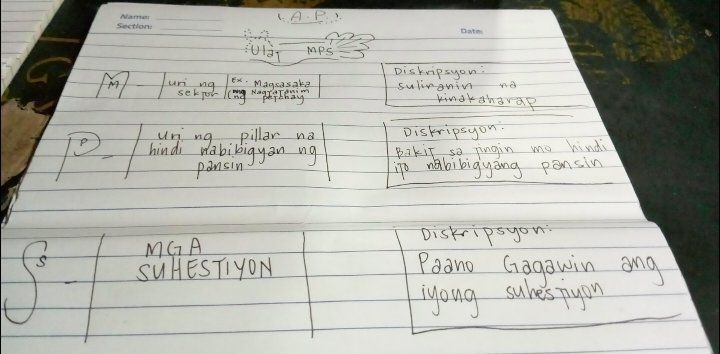 Name:
Section:
Date:
(A.P.)
Ulat MPS
M - uri ng sektor
Ex. Magsasaka
ng Nagtatanim
ng
Diskripsyon:
suliranin na
kinakaharap
P - uri ng pillar na
hindi nabibigyan ng
pansin
Diskripsyon:
Bakit sa tingin mo hindi
ito nabibigyang pansin
S - MGA
SUHESTIYON
Diskripsyon:
Paano Gagawin ang
iyong suhestiyon